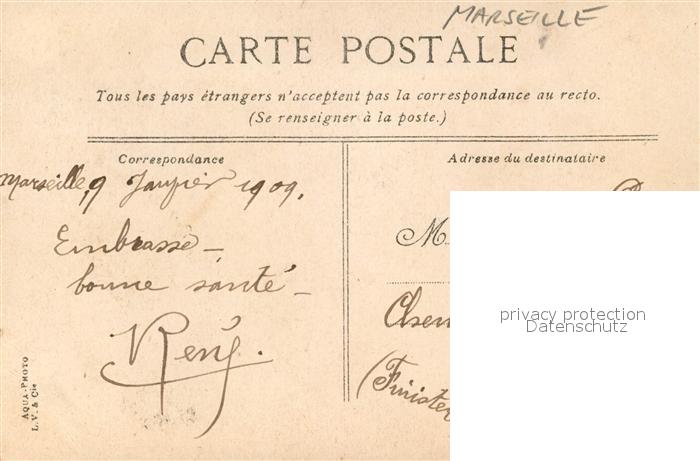 MARSEILLE
CARTE POSTALE
Tous les pays étrangers n'acceptent pas la correspondance au recto.
(Se renseigner à la poste.)
Correspondance
Adresse du destinataire
Marseille, 9 Janvier 1909.
Embrasse –
bonne santé –
René.
M.
(Finister
privacy protection
Datenschutz
AQUA-PHOTO
L.V. & Cie